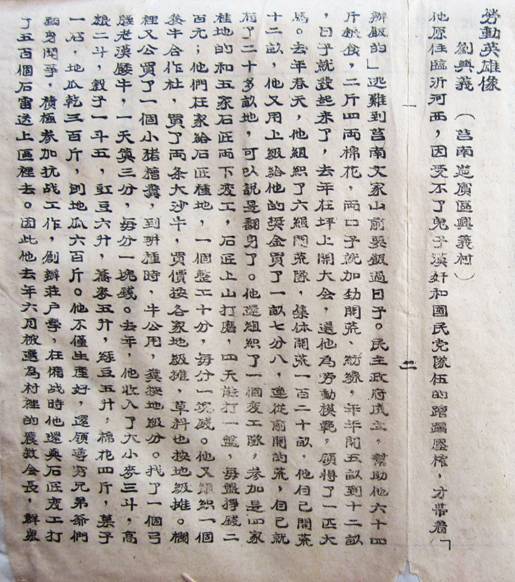 勞動英雄像
劉興義(莒南筵賓區興義村)
他原住臨沂河西,因受不了鬼子漢奸和國民党隊伍的蹧蹋壓榨,才帶着「
二
辦飯的」逃難到莒南文家山前吳銀過日子。民主政府成立,幫助他六十四
斤糧食,二斤四両棉花,両口子就加劲開荒、紡線,年年開五畝到十二畝
,日子就發起來了,去年在坪上開大會,選他為勞動模範,領得了一匹大
馬。去年春天,他組織了六組開荒隊,集体開荒一百二十畝,他自己開荒
十二畝,他又用上級給他的獎金買了一畝七分八,連從前開的荒,自己就
有了二十多畝地,可以說是翻身了。他還組織了一個变工隊,参加是四家
種地的和五家石匠両下变工,石匠上山打磨,四天能打一盤,每盤掙錢二
百元;他們在家給石匠種地,一個整工十分,每分一塊錢。他又組織一個
養牛合作社,買了両条大沙牛,買價按各家地級攤,草料也按地級攤。欄
裡又公買了一個小猪攢糞,到耕種時,牛公用,糞按地級分。找了一個弓
腰老漢餵牛,一天算三分,每分一塊錢。去年,他收入了大小麥三斗,高
粱二斗,穀子一斗五,豇豆六升,蕎麥五升,綠豆五升,棉花四斤,菓子
一石,地瓜乾三百斤,刨地瓜六百斤。他不僅生産好,還領導窮兄弟爺們
翻身鬧爭,積極参加抗战工作,創辦莊户學,在備战時他還與石匠变工打
了五百個石雷送上區裡去。因此他去年六月被選為村裡的農救会長,群衆